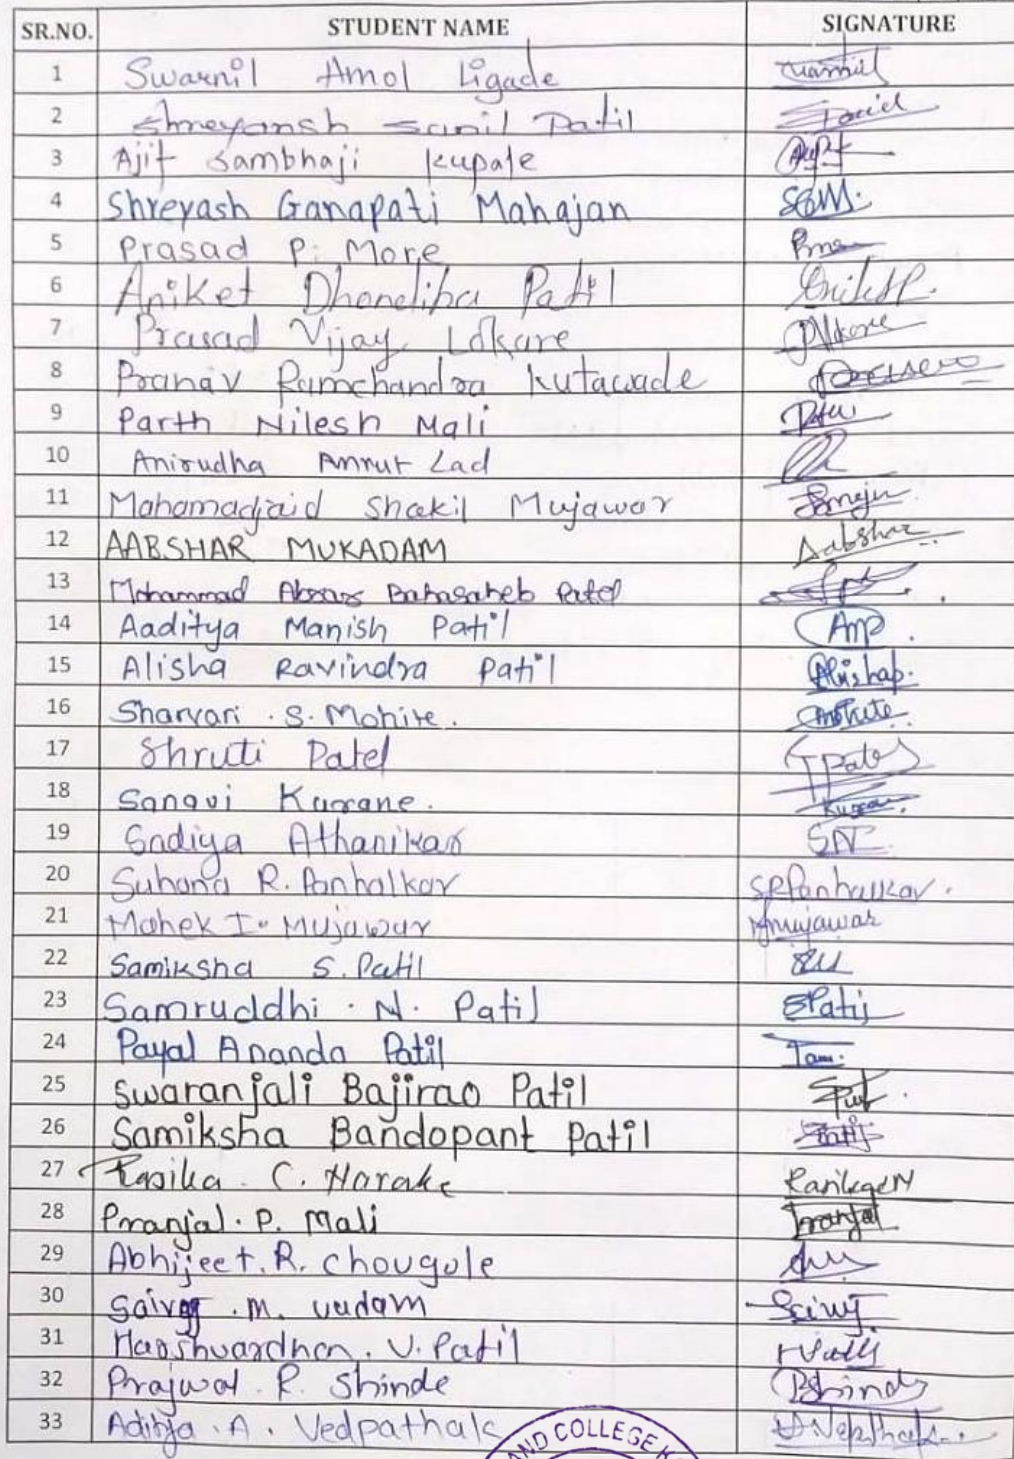 SR.NO. STUDENT NAME SIGNATURE
1 Swarnil Amol Ligade
2 Shreyansh Sanil Patil
3 Ajit Sambhaji Kupale
4 Shreyash Ganapati Mahajan SGM.
5 Prasad P. More
6 Aniket Dhondiba Patil
7 Prasad Vijay Lokare
8 Pranav Ramchandra Kutawade
9 Parth Nilesh Mali
10 Anirudha Amrut Lad
11 Mahamadjaid Shakil Mujawar
12 AABSHAR MUKADAM Aabshar
13 Mohammad Abrar Babasaheb Patel
14 Aaditya Manish Patil AMP.
15 Alisha Ravindra Patil Alishap.
16 Sharvari . S. Mohite. Mohite
17 Shruti Patel Patel
18 Sanavi Karrane.
19 Sadiya Athanikar
20 Suhana R. Panhalkar S.R.Panhalkar.
21 Mahek I. Mujawar Mujawar
22 Samiksha S. Patil
23 Samruddhi . N. Patil SPatil
24 Payal Ananda Patil
25 Swaranjali Bajirao Patil
26 Samiksha Bandopant Patil Patil
27 Rasika . C. Narake
28 Pranjal . P. Mali Pranjal
29 Abhijeet . R. Chougule
30 Sairaj . M. Uadam Sairaj
31 Harshvardhan . V. Patil
32 Prajwal . R. Shinde PShinde
33 Aditya . A . Vedpathak
AND COLLEGE